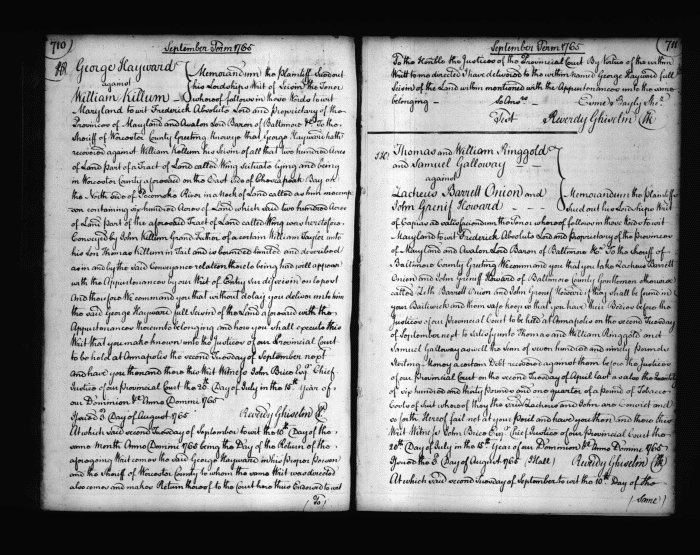 710
September Term 1765
George Hayward
against
William Killum
Memorandum the Plaintiff Sued out
his Lordships Writ of Seisin the Tenor
whereof follows in these Words to wit
Maryland to wit Frederick Absolute Lord and Proprietary of the
Provinces of Maryland and Avalon Lord Baron of Baltimore &c To the
Sheriff of Worcester County Greeting Know ye that George Hayward hath
recovered against William Killum his Seisin of all that two hundred Acres
of Land part of a Tract of Land called Wing situate lying and being
in Worcester County aforesaid on the East Side of Chesapeak Bay on
the North Side of Pocomoke River in a Neck of Land called
containing six hundred Acres of Land which said two hundred Acres
of Land part of the aforesaid Tract of Land called Wing was heretofore
Conveyed by John Killum Grand Father of a certain William Taylor unto
his Son Thomas Killum in Tail and is bounded limited and described
as in and by the said Conveyance relation thereto being had will appear
with the Appurtenances by our Writ of Entry Sur disseisin en le post
And therefore We command you that without delay you deliver unto him
the said George Hayward full Seisin of the Land aforesaid with the
Appurtenances thereunto belonging and how you shall execute this
Writ that you make known unto the Justices of our Provincial Court
to be held at Annapolis the second Tuesday of September next
and have you then and there this Writ Witness John Brice Esqr Chief
Justice of our Provincial Court the 20th Day of July in the 15th Year of
our Dominion &c Anno Domini 1765
Issued 3d Day of August 1765 Reverdy Ghiselin Ck
At which said second Tuesday of September to wit the 10th Day of the
same Month Anno Domini 1765 being the Day of the Return of the
aforegoing Writ comes the said George Hayward in his Proper Person
and the Sheriff of Worcester County to whom the same Writ was directed
also comes and makes Return thereof to the Court here thus Endorsed to wit
(To)
September Term 1765
711
To the Honble the Justices of the Provincial Court By Virtue of the within
Writ to me directed I have delivered to the within named George Hayward full
Seisin of the Land within mentioned with the Appurtenances unto the same
belonging
Esme Bayly Shf.
Test Reverdy Ghiselin Ck
Thomas and William Ringgold
and Samuel Galloway
against
Zacheus Barrett Onion and
John Greniff Howard
Memorandum the Plaintiffs
Sued out his Lordships Writ
of Capias ad satisfaciendum the Tenor whereof follows in these Words to wit
Maryland to wit Frederick Absolute Lord and Proprietary of the Provinces
of Maryland and Avalon Lord Baron of Baltimore &c To the Sheriff of
Baltimore County Greeting We command you that you take Zacheus Barrett
Onion and John Greniff Howard of Baltimore County Gentlemen otherwise
called Zeth Barrett Onion and John Greniff Howard if they shall be found in
your Bailiwick and them safe keep so that you have their Bodies before the
Justices of our Provincial Court to be held at Annapolis on the second Tuesday
of September next to satisfy unto Thomas and William Ringgold and
Samuel Galloway as well the Sum of seven hundred and ninety Pounds
Sterling Money a certain Debt recovered against them before the Justices
of our Provincial Court on the second Tuesday of April last as also the Quantity
of six hundred and thirty Pounds and one quarter of a pound of Tobacco
Costs of Suit whereof they the said Zacheus and John are Convict and
so forth Hereof fail not at your Peril and have you then and there this
Writ Witness John Brice Esqr Chief Justice of our Provincial Court the
20th Day of July in the 15th Year of our Dominion &c Anno Domini 1765
Issued the 3d Day of August 1765 (Hall) Reverdy Ghiselin Ck
At which said second Tuesday of September to wit the 10th Day of the
(same)